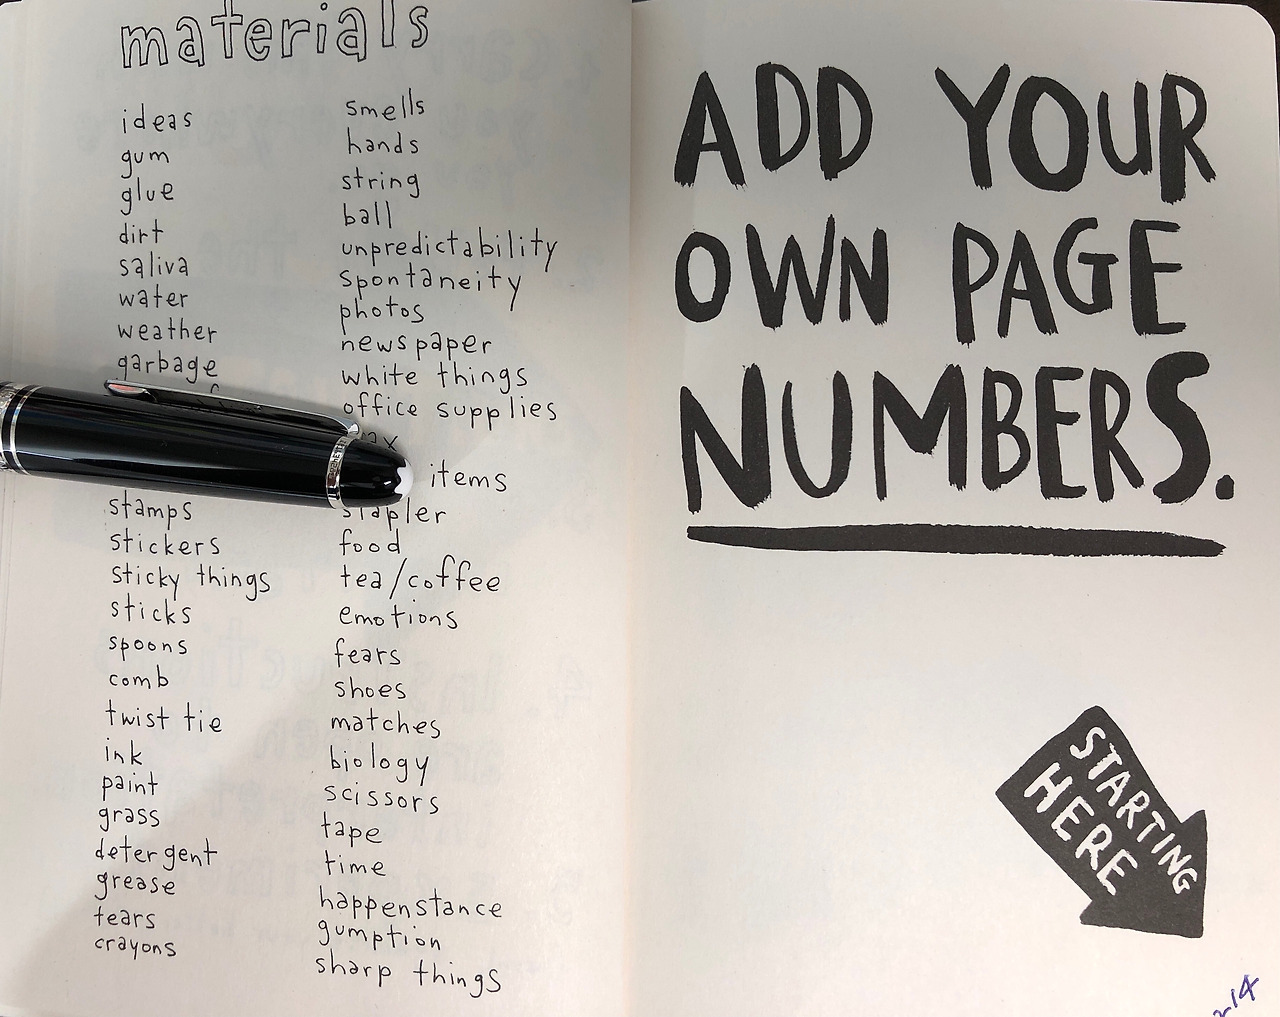 materials
ideas
gum
glue
dirt
saliva
water
weather
garbage
stamps
stickers
sticky things
sticks
spoons
comb
twist tie
ink
paint
grass
detergent
grease
tears
crayons
smells
hands
string
ball
unpredictability
spontaneity
photos
newspaper
white things
office supplies
items
stapler
food
tea/coffee
emotions
fears
shoes
matches
biology
scissors
tape
time
happenstance
gumption
sharp things
ADD YOUR
OWN PAGE
NUMBERS.
STARTING
HERE